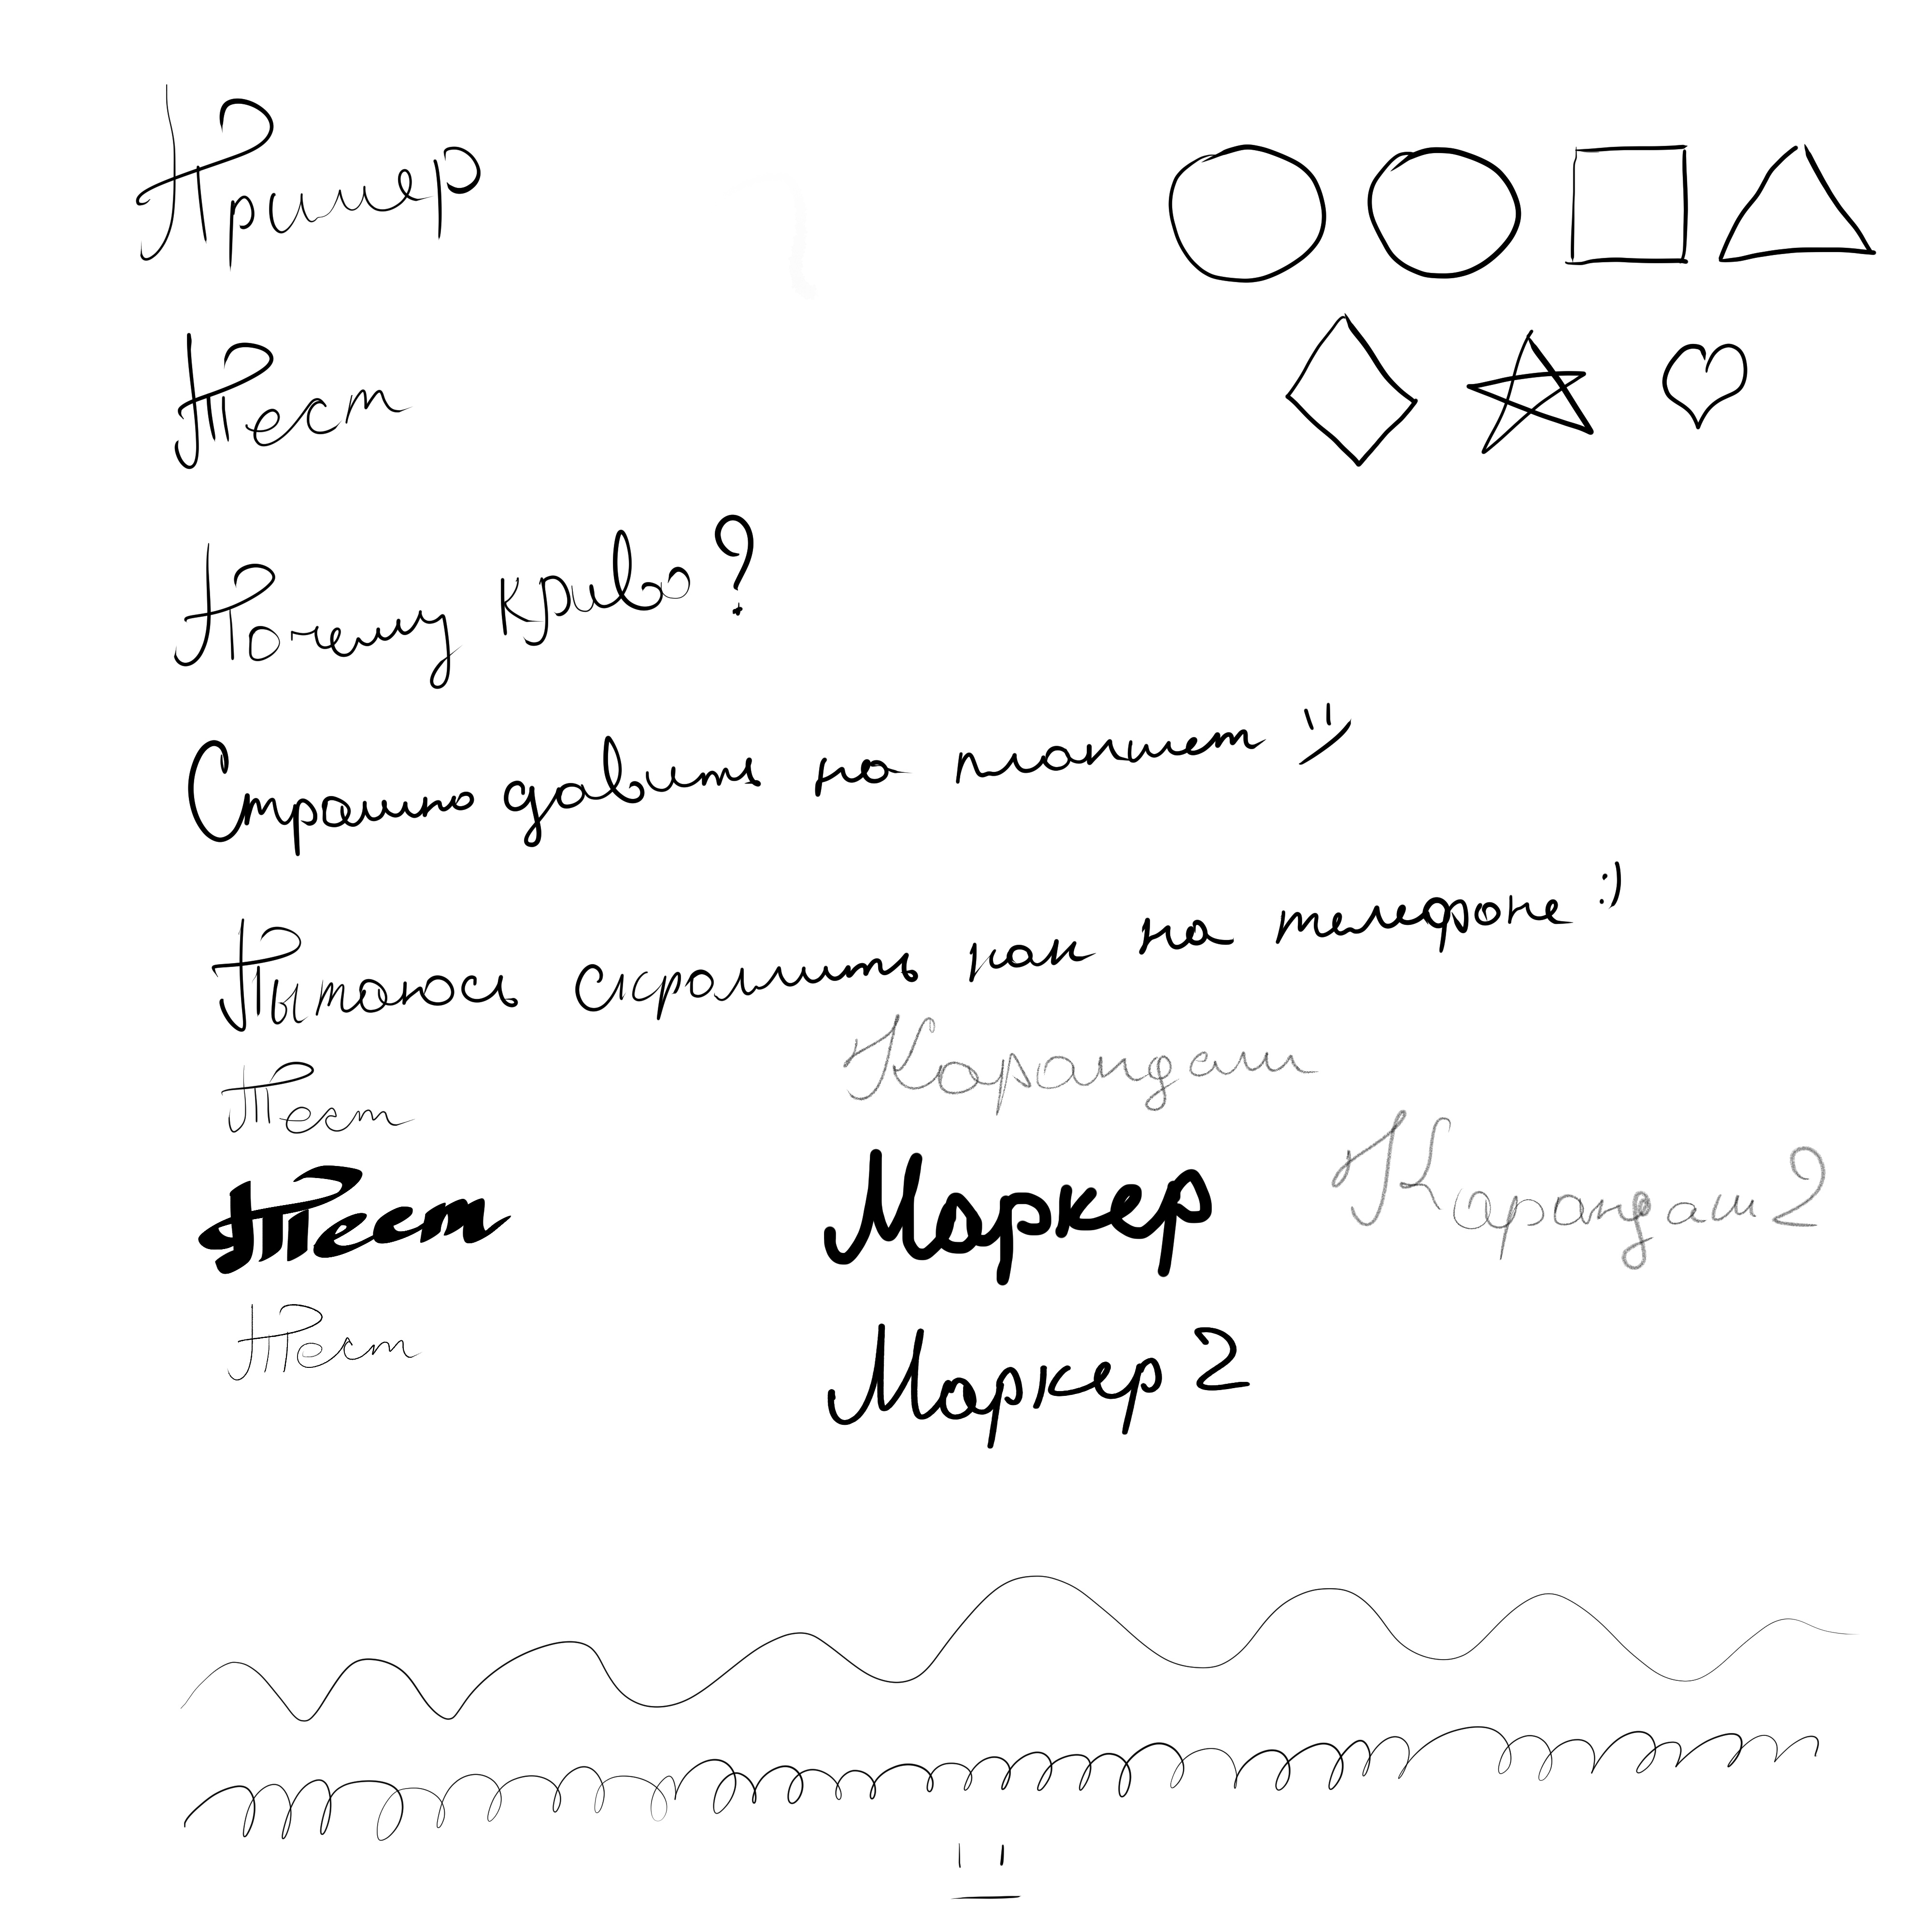 Пример
Тест
Почему криво?
Страшно давить на планшет :)
Пытаюсь скролить как на телефоне :)
Карандаш
Тест
Карандаш 2
Тест
Маркер
Тест
Маркер 2